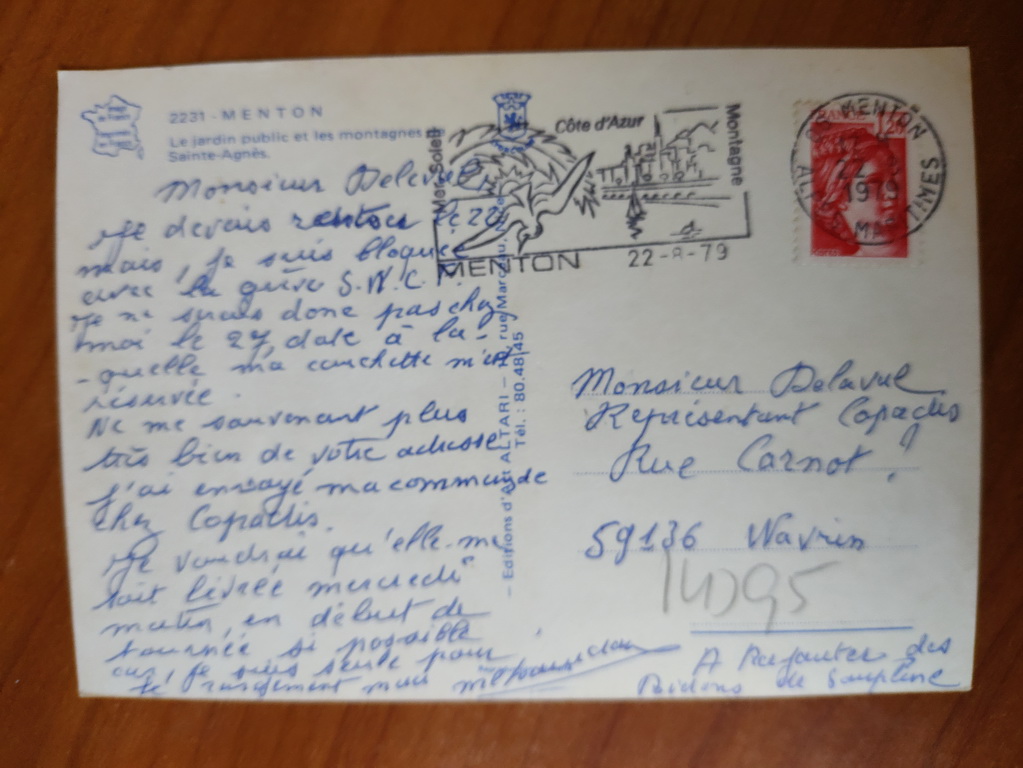 2231 - MENTON
Le jardin public et les montagnes de
Sainte-Agnès.
Monsieur Delaval
Je devais rentrer le 22
mais, je suis bloquée
avec la grève S.N.C.F.
Je ne serais donc pas chez
moi le 27, date à la-
-quelle ma couchette m'est
réservée.
Ne me souvenant plus
très bien de votre adresse
j'ai envoyé ma commande
chez Copaclis.
Je voudrai qu'elle me
soit livrée mercredi
matin, en début de
tournée si possible
car, je suis seule pour
le rangement
- Editions d'Art ALTARI -
Tél. : 80.48.45
Mer-Soleil
Côte d'Azur
Montagne
MENTON
22-8-79
MENTON
22
1979
Monsieur Delaval
Représentant Copaclis
Rue Carnot ?
59136 Wavrin
14095
A Rajouter des
Bidons de Soupline